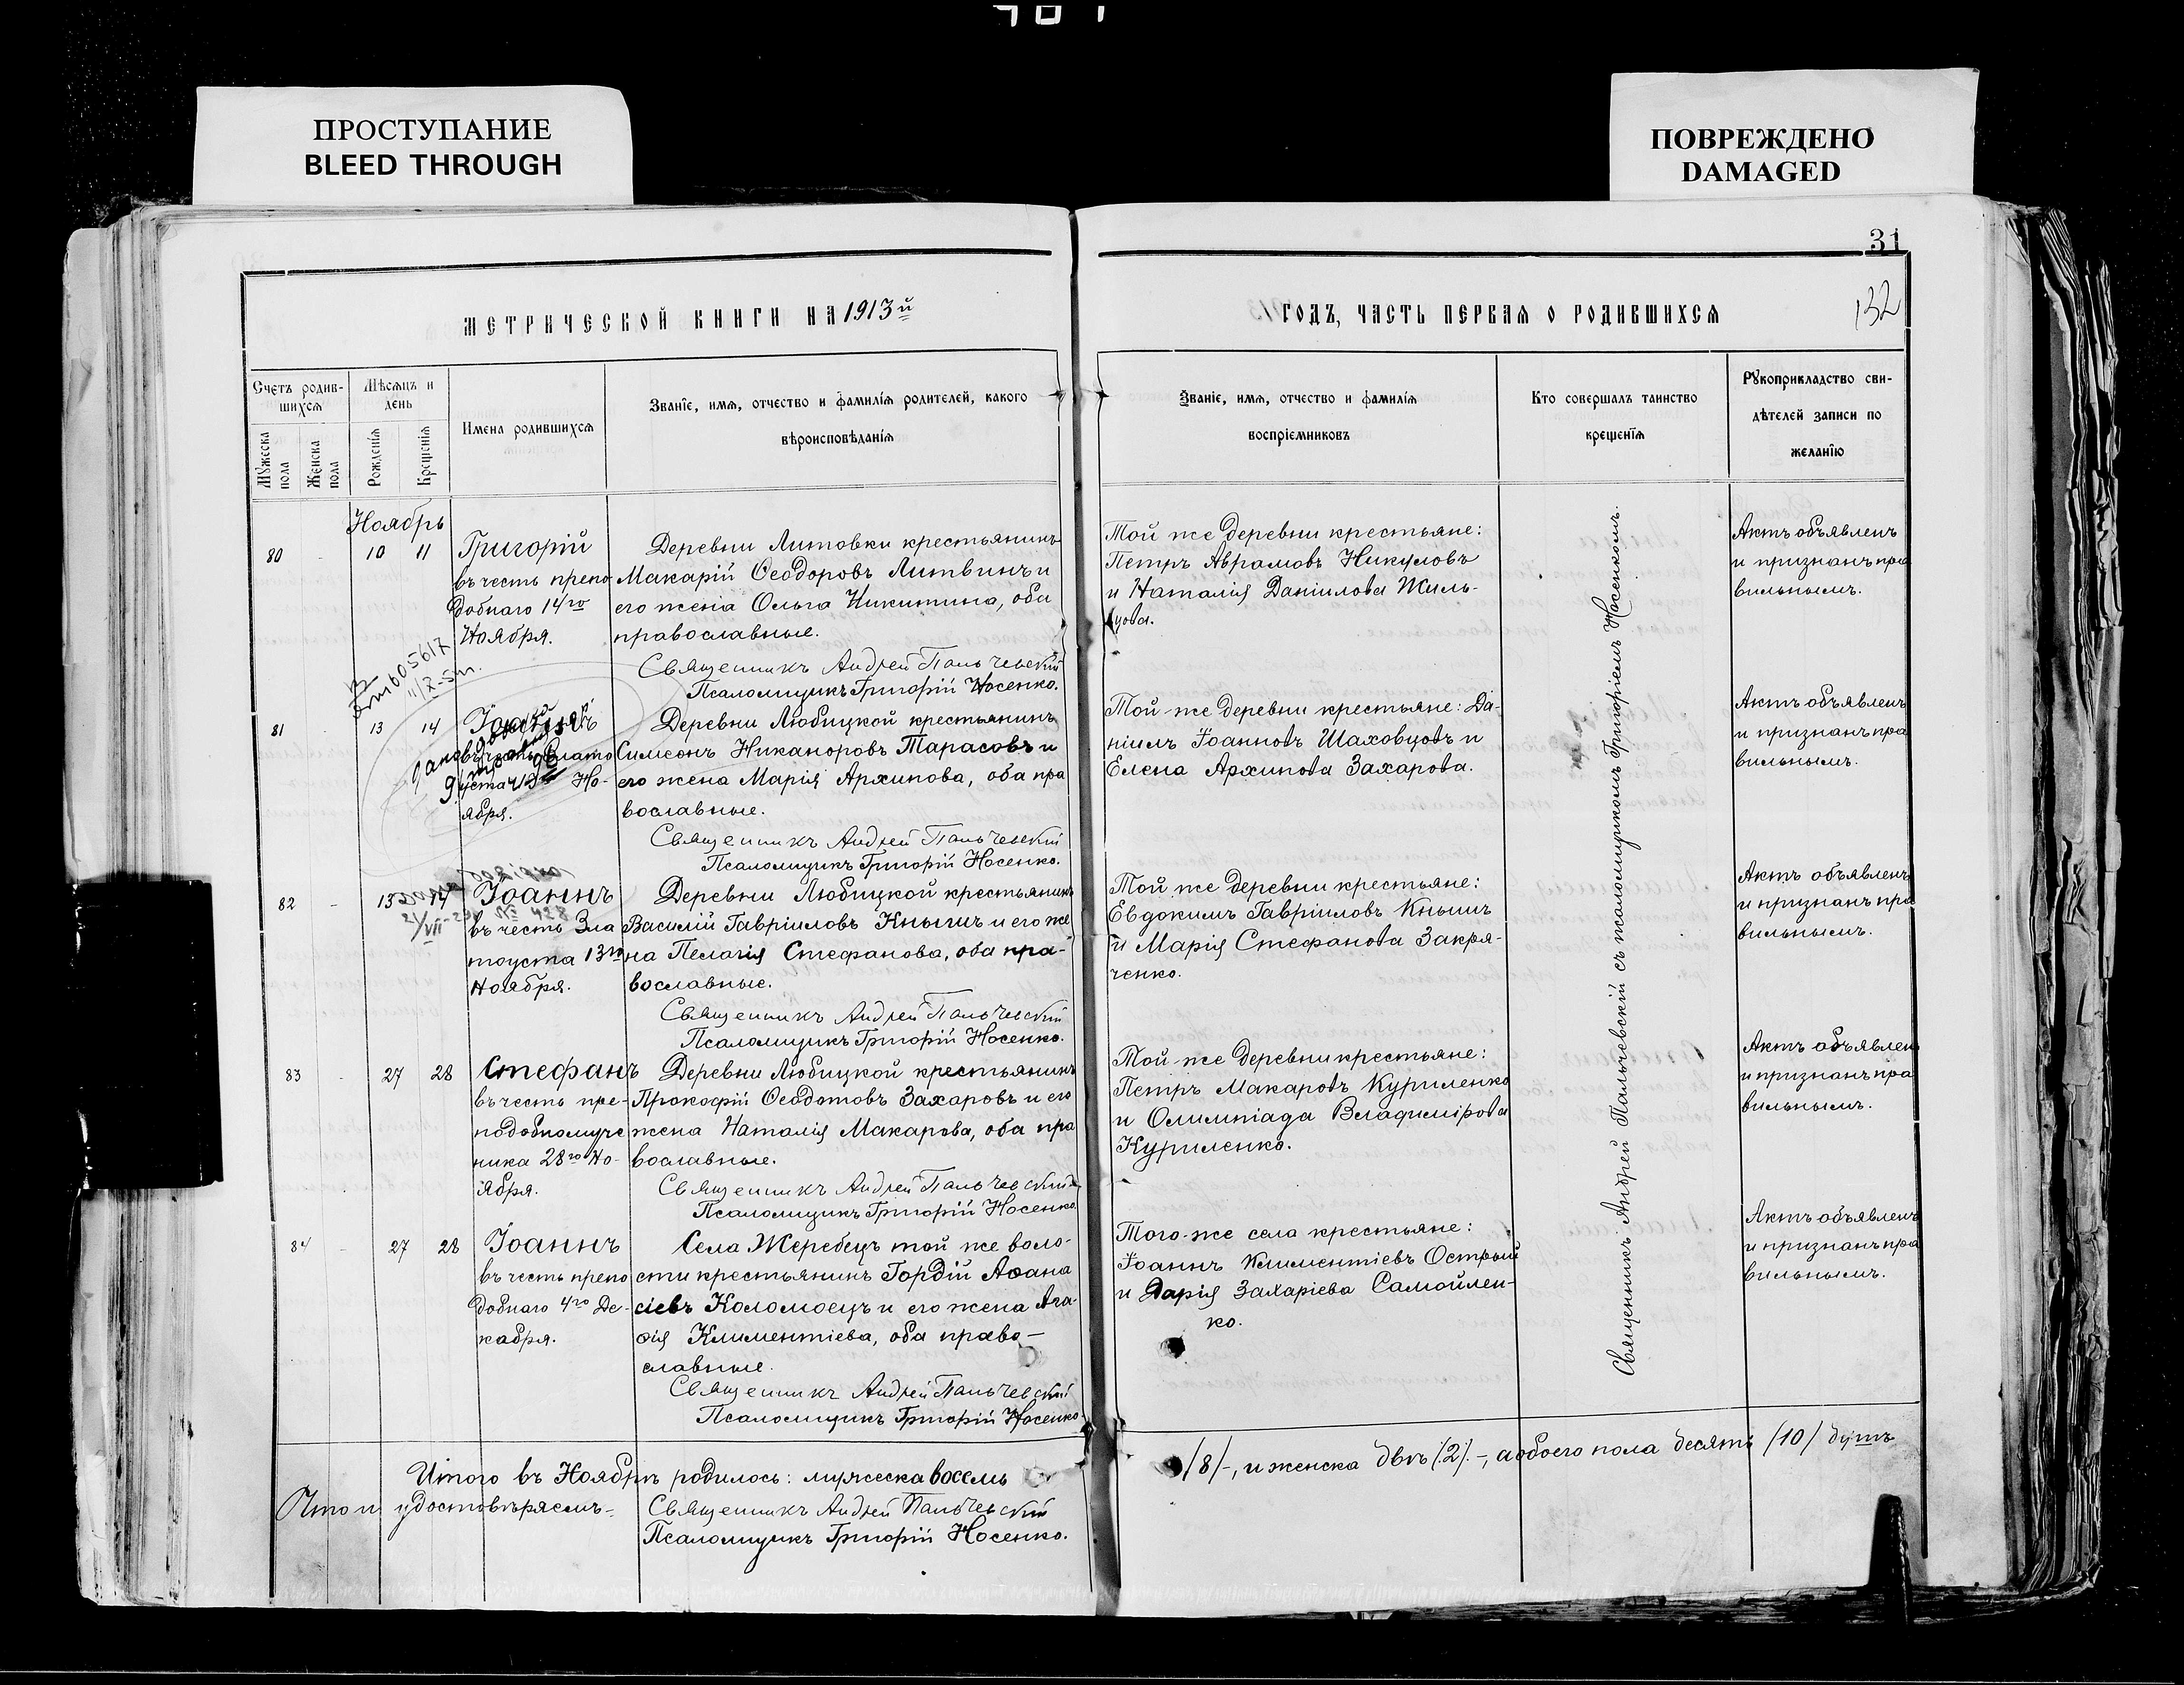 ПРОСТУПАНИЕ
BLEED THROUGH
ПОВРЕЖДЕНО
DAMAGED
31
132
МЕТРИЧЕСКОЙ КНИГИ НА 1913й
ГОДЪ, ЧАСТЬ ПЕРВАЯ О РОДИВШИХСЯ
Счетъ родив-
шихся
Мѣсяцъ и
день
Мужеска
пола
Женска
пола
Рожденія
Крещенія
Имена родившихся
Званіе, имя, отчество и фамилія родителей, какого
вѣроисповѣданія
Званіе, имя, отчество и фамилія
воспріємниковъ
Кто совершалъ таинство
крещенія
Рукоприкладство сви-
дѣтелей записи по
желанію
Ноябрь
80 - 10 11
Григорій
въ честь препо
добнаго 14го
Ноября.
Деревни Литовки крестьянинъ
Макарій Ѳеодоровъ Литвинъ и
его жена Ольга Никитина, оба
православные.
Священникъ Андрей Пальчевскій
Псаломщикъ Григорій Носенко.
Той же деревни крестьяне:
Петръ Аврамовъ Никуловъ
и Наталія Даніилова Жиль-
цова.
Актъ объявленъ
и признанъ пра
вильнымъ.
81 - 13 14
Іоаннъ
въ честь Злато
уста 13 Но-
ября.
Деревни Любицкой крестьянинъ
Симеонъ Никаноровъ Тарасовъ и
его жена Марія Архипова, оба пра
вославные.
Священникъ Андрей Пальчевскій
Псаломщикъ Григорій Носенко.
Той-же деревни крестьяне: Да-
ніилъ Іоанновъ Шаховцовъ и
Елена Архипова Захарова.
Актъ объявленъ
и признанъ пра
вильнымъ.
82 - 13 14
№ 428
Іоаннъ
въ честь Зла
тоуста 13го
Ноября.
Деревни Любицкой крестьянинъ
Василій Гавріиловъ Кнышъ и его же
на Пелагія Стефанова, оба пра-
вославные.
Священникъ Андрей Пальчевскій
Псаломщикъ Григорій Носенко.
Той же деревни крестьяне:
Евдокимъ Гавріиловъ Кнышъ
и Марія Стефанова Закря-
ченко.
Актъ объявленъ
и признанъ пра
вильнымъ.
83 - 27 28
Стефанъ
въ честь пре-
подобномуче
ника 28го Но-
ября.
Деревни Любицкой крестьянинъ
Прокофій Ѳеодотовъ Захаровъ и его
жена Наталія Макарова, оба пра
вославные.
Священникъ Андрей Пальчевскій
Псаломщикъ Григорій Носенко.
Той-же деревни крестьяне:
Петръ Макаровъ Куриленко
и Олимпіада Владимірова
Куриленко.
Актъ объявленъ
и признанъ пра
вильнымъ.
84 - 27 28
Іоаннъ
въ честь препо
добнаго 4го Де-
кабря.
Села Жеребецъ той же воло-
сти крестьянинъ Гордій Аѳана
сіевъ Коломоецъ и его жена Ага-
ѳія Климентіева, оба право-
славные.
Священникъ Андрей Пальчевскій
Псаломщикъ Григорій Носенко.
Того-же села крестьяне:
Іоаннъ Климентіевъ Острый
и Дарія Захаріева Самойлен-
ко.
Актъ объявленъ
и признанъ пра
вильнымъ.
Священникъ Андрей Пальчевскій съ псаломщикомъ Григоріемъ Носенкомъ.
Итого въ Ноябрѣ родилось: мужеска восемь /8/-, и женска двѣ /2/.-, а обоего пола десять /10/ душъ
Что и удостовѣряемъ-
Священникъ Андрей Пальчевскій
Псаломщикъ Григорій Носенко.